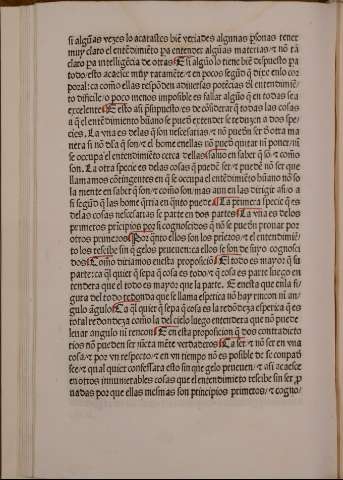 si algũas vezes lo acatastes biẽ veriades algunas ꝑsonas tener
muy claro el entẽdimiẽto ꝑa entender algũas materias/⁊ nõ tã
claro ꝑa intelligẽcia de otras E si algũo lo tiene biẽ dispuesto ꝑa
todo/esto acaesce muy raramẽte/⁊ en pocos segũd q̃ dixe enlo cor
poral:ca como ellas respõden adiuersas potẽcias dl entendimiẽ/
to dificile/o poco menos imposible es fallar algũo que en todas sea
excelente Esto assi p̃supuesto es de cõsiderar q̃ todas las cosas
a q̃ el entẽdimiento hũano se puede extender se reduzen a dos spe/
cies. La vna es delas q̃ son necesarias/⁊ nõ puedẽn ser d̃ otra ma
nera si nõ dela q̃ son/⁊ el home enellas nõ puede quitar ni poner/ni
se occupa el entendimiẽto cerca dellas saluo en saber q̃ sõ/⁊ como
son. La otra specie es delas cosas q̃ puedẽ ser/⁊ puedẽ nõ ser que
llamamos cõtingentes en q̃ se occupa el entẽdimiẽto hũano nõ so
la mente en saber q̃ son/⁊ como son/mas aun en las dirigir assi o a
si segũd q̃ las home q̃rria en q̃nto puede La primera specie q̃ es
delas cosas necesarias se parte en dos partes La vna es delos
primeros principios por si cognoscidos q̃ nõ se puedẽn prouar por
otros primeros Por q̃nto ellos son los prieros/⁊ el entendimiẽ/
to los rescibe sin q̃ gelos prueuen:ca ellos se son de suyo cognosci
dos Como diriamos cuesta proposiciõ El todo es mayor q̃ su
parte:ca q̃l quier q̃ sepa q̃ cosa es todo/⁊ q̃ cosa es parte luego en
tendera que el todo es mayor que la parte. E enesta que enla fi
gura del todo redonda que se llama esperica nõ hay rincon ni an/
gulo águlo Ca q̃l quier q̃ sepa q̃ cosa es la redõdeza esperica q̃ es
total redondeza como la del cielo luego entendera que nõ puede
leuar angulo ni rencon E en esta proposicion q̃ dos contradicto
rios nõ pueden ser jũcta mẽte verdaderos Ca ser/⁊ nõ ser en vna
cosa/⁊ por vn respecto/⁊ en vn tiempo nõ es posible de se conpati
sce/⁊ qual quier confessara esto sin que gelo prueuen/⁊ assi acaesce
en otros innumerables cosas que el entendimiento rescibe sin ser ꝓ
uadas por que ellas mesmas son principios primeros/⁊ cogno/